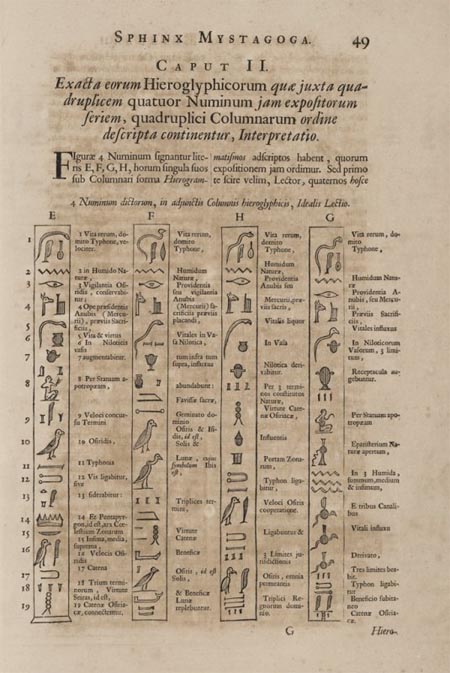 SPHINX MYSTAGOGA. 49
CAPUT II.
Exacta eorum Hieroglyphicorum quæ juxta qua-
druplicem quatuor Numinum jam expositorum
seriem, quadruplici Columnarum ordine
descripta continentur, Interpretatio.
FIguræ 4 Numinum signantur lite-
ris E, F, G, H, horum singula suos
sub Columnari forma Hierogram-
matismos adscriptos habent, quorum
expositionem jam ordimur. Sed primo
te scire velim, Lector, quaternos hosce
4 Numinum dictorum, in adjunctis Columnis hieroglyphicis, Idealis Lectio.
E
1
1 Vita rerum,
domito
Typhone, ve-
lociter.
2
2 in Humido Na-
turæ
3
3 Vigilantia Osi-
ridis, conserva-
tur;
4
4 Ope præsidentis
Anubis (Mercu-
rii), præviis Sacri-
ficiis,
5
5 Vita & virtus
6
6 In Niloticis
vasis
7
7 augmentabitur.
8
8 Per Stanum a-
potropæum,
9
9 Veloci concur-
su Termini
10
10 Osiridis,
11
11 Typhonis
12
12 Vis ligabitur,
sive
13
13 siderabitur:
14
14 Et Pentapyr-
gon, id est, arx Cœ-
lestium Zonarum
15
15 Infima, media,
suprema,
16
16 Velocis Osi-
ridis
17
17 Catena
18
18 Trium termi-
norum, Virtute
Seiras, id est,
19
19 Catenæ Osiria-
cæ, connectentur.
F
Vita rerum,
domito
Typhone,
Humidum
Naturæ,
Providentia
seu vigilantia
Anubis
(Mercurii) sa-
crificiis præviis
placandi,
Vitales in Va-
sa Nilotica,
tum infra tum
supra, influxus
abundabunt:
Favissæ sacræ,
Geminato do-
minio
Osiris & Isi-
dis, id est,
Solis &
Lunæ, cujus
symbolum Ibis
est,
Triplices ter-
mini,
Virtute
Catenæ
Beneficæ
Osiris, id est
Solis,
& Beneficæ
Lunæ
replebuntur.
H
Vita rerum,
domito
Typhone,
Humidum
Naturæ,
Providentia
Anubis seu
Mercurii, præ-
viis sacris,
Vitalis liquor
In Vasa
Nilotica deri-
vabitur.
Per 3 termi-
nos constitutos
Naturæ,
Virtute Cate-
næ Osiriacæ,
Influentia
Portam Zona-
rum,
Typhon liga-
batur,
Veloci Osiris
cooperatione.
Ligabuntur &
3 Limites ju-
risdictionis
Osiris, omnia
permeantis
Triplici Re-
gionum domi-
nio.
G
Vita rerum, do-
mito
Typhone,
Humidum Natu-
ræ
Providentia A-
nubis, seu Mercu-
rii,
Præviis Sacrifi-
ciis,
Vitales influxus
In Niloticorum
Vasorum, 3 limi-
tes,
Receptacula au-
gebuntur.
Per Stanum apo-
tropæum
Epanisterium Na-
turæ apertum,
In 3 Humida,
summum, medium
& infimum,
E tribus Canali-
bus
Vitali influxu
Derivato,
Tres limites bo-
nis.
Typhon ligabi-
tur
Beneficio subita-
neo
Catenæ Osiria-
cæ.
G Hiero-